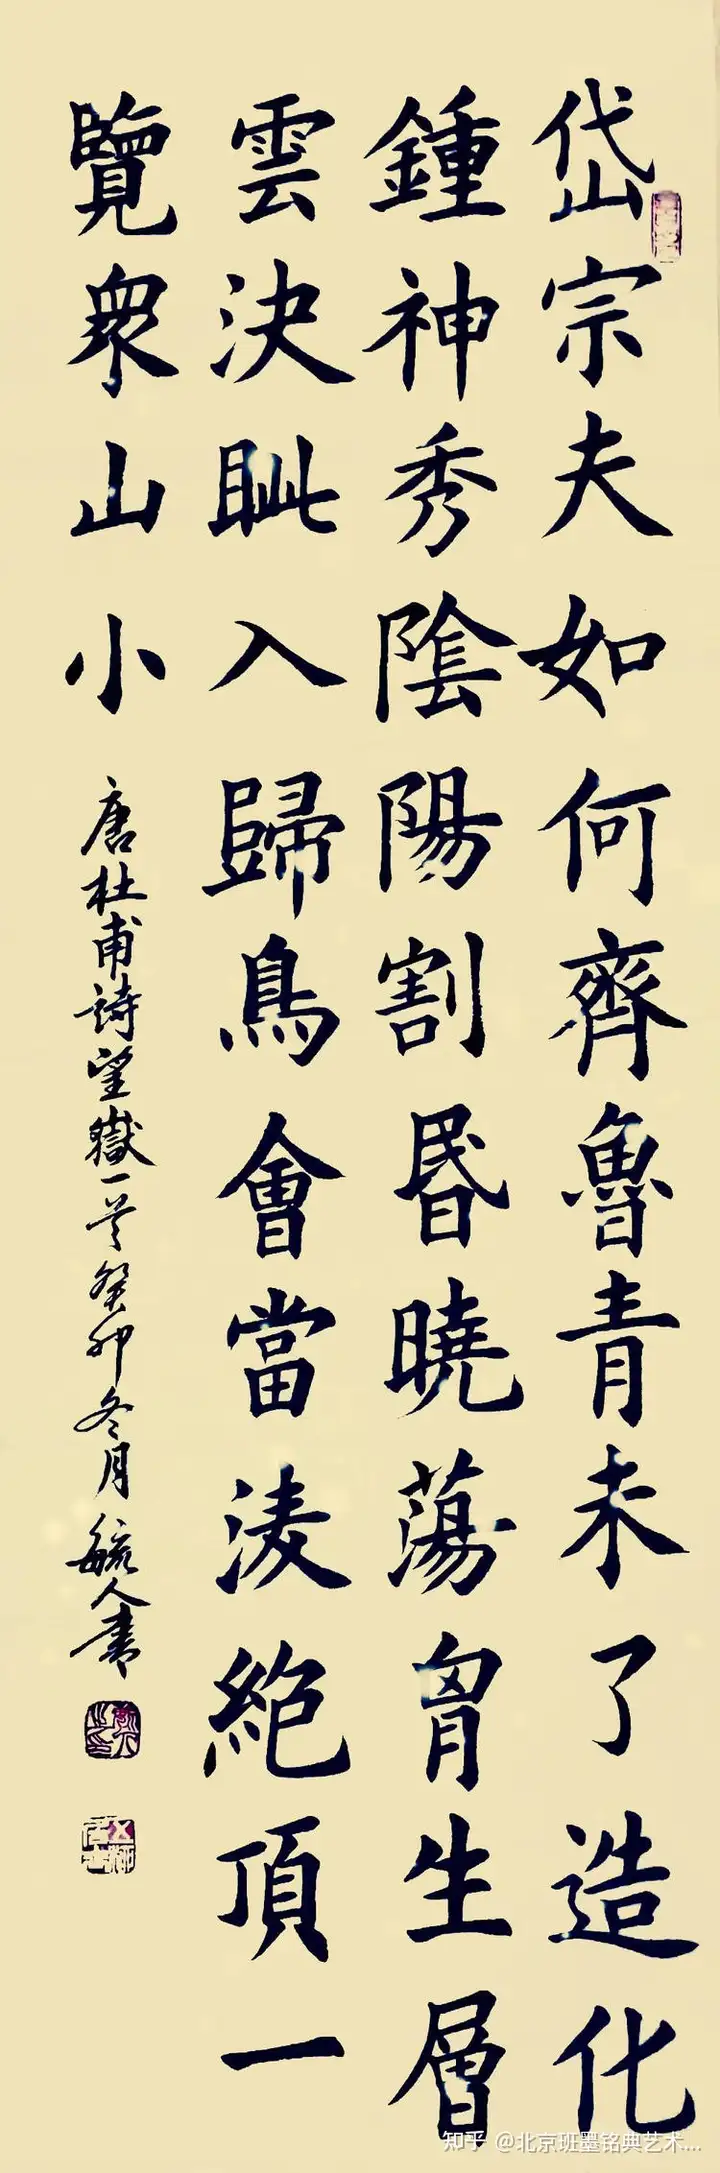 岱宗夫如何齊魯青未了造化
鍾神秀陰陽割昬曉蕩胷生層
雲決眦入歸鳥會當淩絕頂一
覽衆山小
唐杜甫詩望嶽一首癸卯冬月毓人書
知乎 @北京班墨铭典艺术...